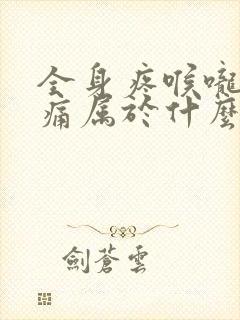 全身疼喉嚨
痛属於什麼
劍蒼雲